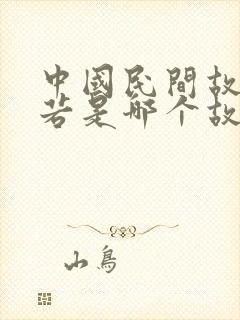 中國民間故
若是哪个故
山鳥